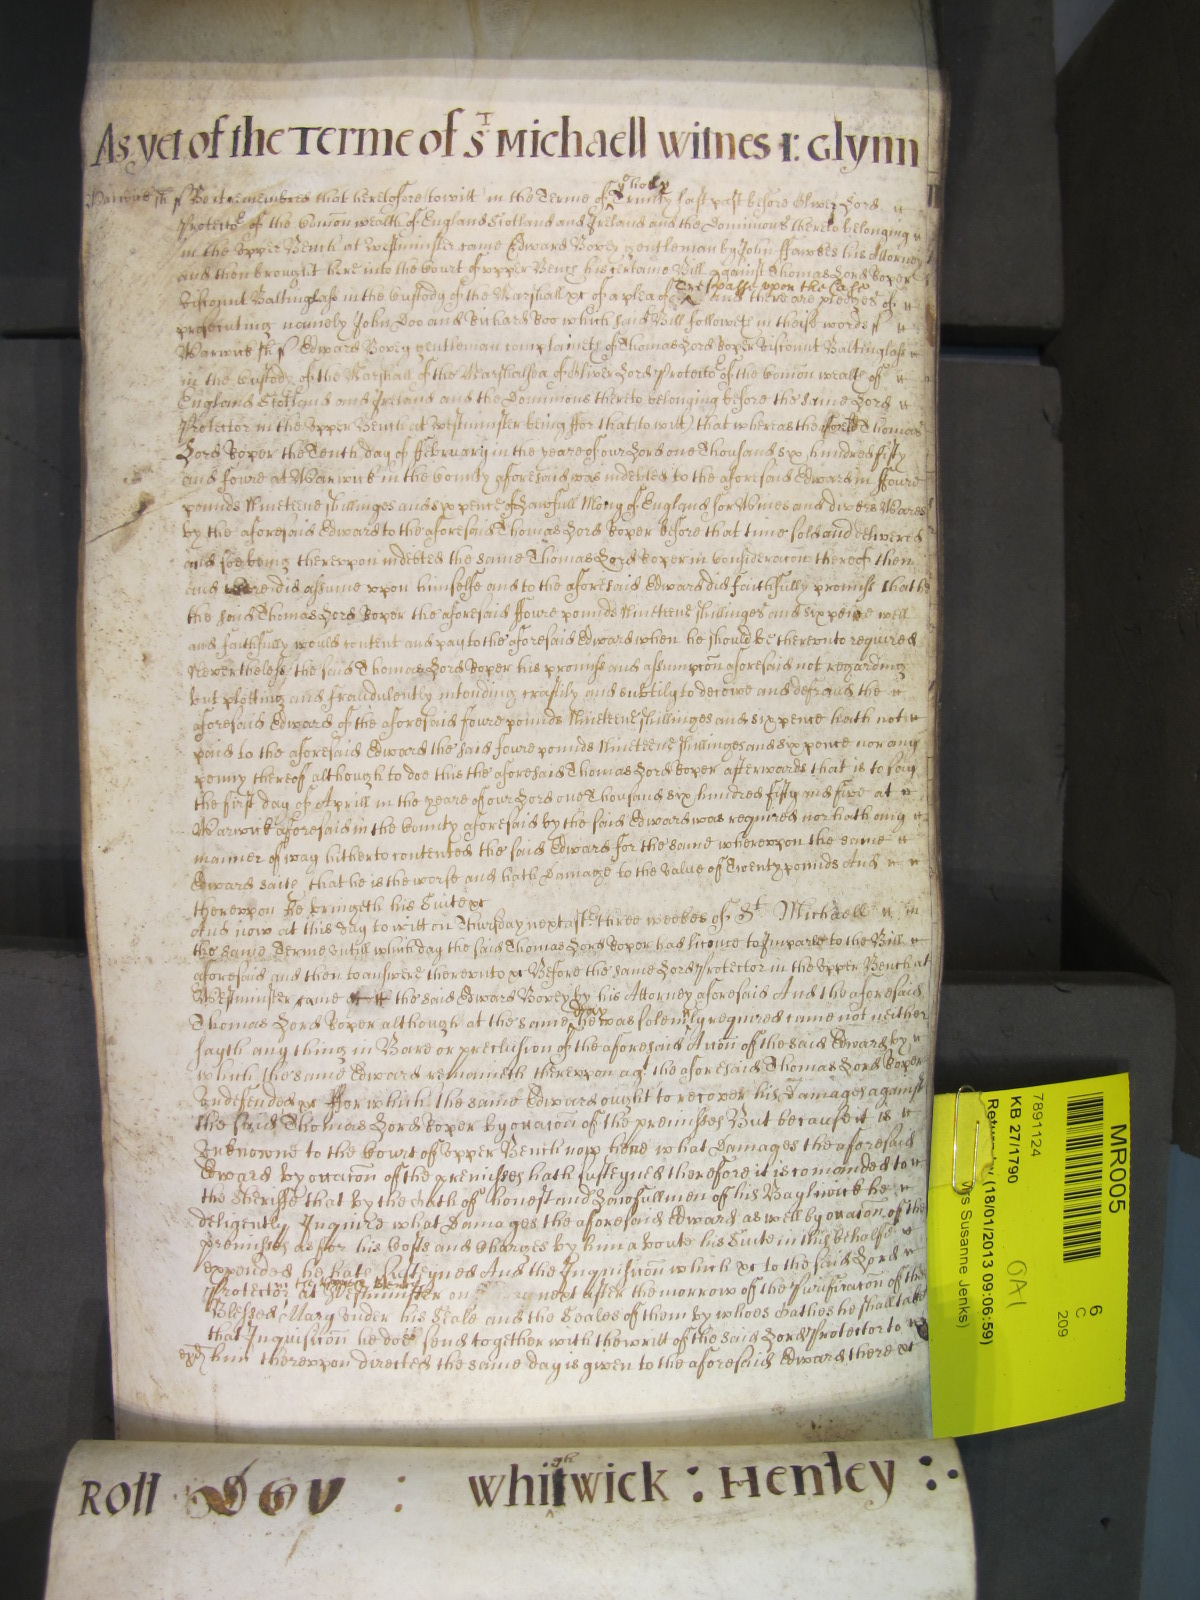 As yet of the Terme of St Michaell Witnes I: Glynn
Warwick sh ss Be it remembred that heretofore to witt in the Terme of ye holy Trinity last past before Oliver Lord
Protector of the Comon wealth of England Scotland and Ireland and the Dominions thereto belonging
in the Upper Bench at Westminster came Edward Bovey gentleman by John ffawkes his Attorney
and then brought here into the Court of upper Bench his certaine Bill against Thomas Lord Roper
Viscount Baltinglasse in the Custody of the Marshall &c of a plea of Trespasse upon the Case and there are pledges of
prosecuting namely John Doo and Richard Roo which said Bill followeth in theise words ss
Warwick sh ss Edward Bovey gentleman complaineth of Thomas Lord Roper Viscount Baltinglasse
in the Custody of the Marshall of the Marshalsea of Oliver Lord Protector of the Comon wealth of
England Scotland and Ireland and the Dominions thereto belonging before the same Lord
Protector in the Upper Bench at Westminster being ffor that (to witt) that whereas the aforesd Thomas
Lord Roper the Tenth day of ffebruary in the yeare of our Lord one Thousand six hundred fifty
and foure at Warwick in the County aforesaid was indebted to the aforesaid Edward in ffoure
pounds Nineteene shillinges and sixpence of Lawfull Mony of England for Wines and divers Wares
by the aforesaid Edward to the aforesaid Thomas Lord Roper before that time sold and delivered
and soe being thereupon indebted the same Thomas Lord Roper in Consideracon thereof then
and there did assume upon himselfe and to the aforesaid Edward did faithfully promise that
the said Thomas Lord Roper the aforesaid ffoure pounds Nineteene shillinges and sixpence well
and faithfully would content and pay to the aforesaid Edward when he should be thereunto required
Neverthelesse the said Thomas Lord Roper his promise and assumpcon aforesaid not regarding
but plotting and fraudulently intending craftily and subtily to deceive and defraud the
aforesaid Edward of the aforesaid foure pounds Nineteene shillinges and sixpence hath not
paid to the aforesaid Edward the said foure pounds Nineteene shillinges and sixpence nor any
penny thereof although to doe this the aforesaid Thomas Lord Roper afterwards that is to say
the first day of Aprill in the yeare of our Lord one Thousand six hundred fifty and five at
Warwick aforesaid in the County aforesaid by the said Edward was required nor hath any
manner of way hitherto contented the said Edward for the same whereupon the same
Edward saith that he is the worse and hath Damage to the value of Twenty pounds And
thereupon he bringeth his Suite &c
And now at this day to witt on Thursday next after three weekes of St Michaell in
the same Terme untill which day the said Thomas Lord Roper had licence to Imparle to the Bill
aforesaid and then to answere thereunto &c Before the same Lord Protector in the Upper Bench at
Westminster came the said Edward Bovey by his Attorney aforesaid And the aforesaid
Thomas Lord Roper although at the same day he was solemly required came not neither
sayth any thing in Barr or preclusion of the aforesaid Accon of the said Edward by
which the same Edward remaineth thereupon agt the aforesaid Thomas Lord Roper
Undefended &c ffor which the same Edward ought to recover his Damages against
the said Thomas Lord Roper by occacon of the premisses But because it is
Unknowne to the Court of Upper Bench now here what Damages the aforesaid
Edward by occacon of the premisses hath susteyned therefore it is comanded to
the Sheriffe that by the oath of honest and Lawfull men of his Baylywick he
deligently Inquire what Damages the aforesaid Edward as well by occacon of the
premisses as for his Costs and Charges by him aboute his Suite in this behalfe
expended he hath susteyned And the Inquisicon which &c to the said Lord
Protector in the Upper Bench at Westminster on next after the morrow of the Purificacon of the
Blessed Mary under his Seale and the Seales of them by whoes oathes he shall take
that Inquisicon he doe send together with the writt of the said Lord Protector to
him thereupon directed the same day is given to the aforesaid Edward there &c
Roll : Whightwick : Henley :
MR005
6
C
209
7891124
KB 27/1790
Return by (18/01/2013 09:06:59)
Mrs Susanne Jenks)